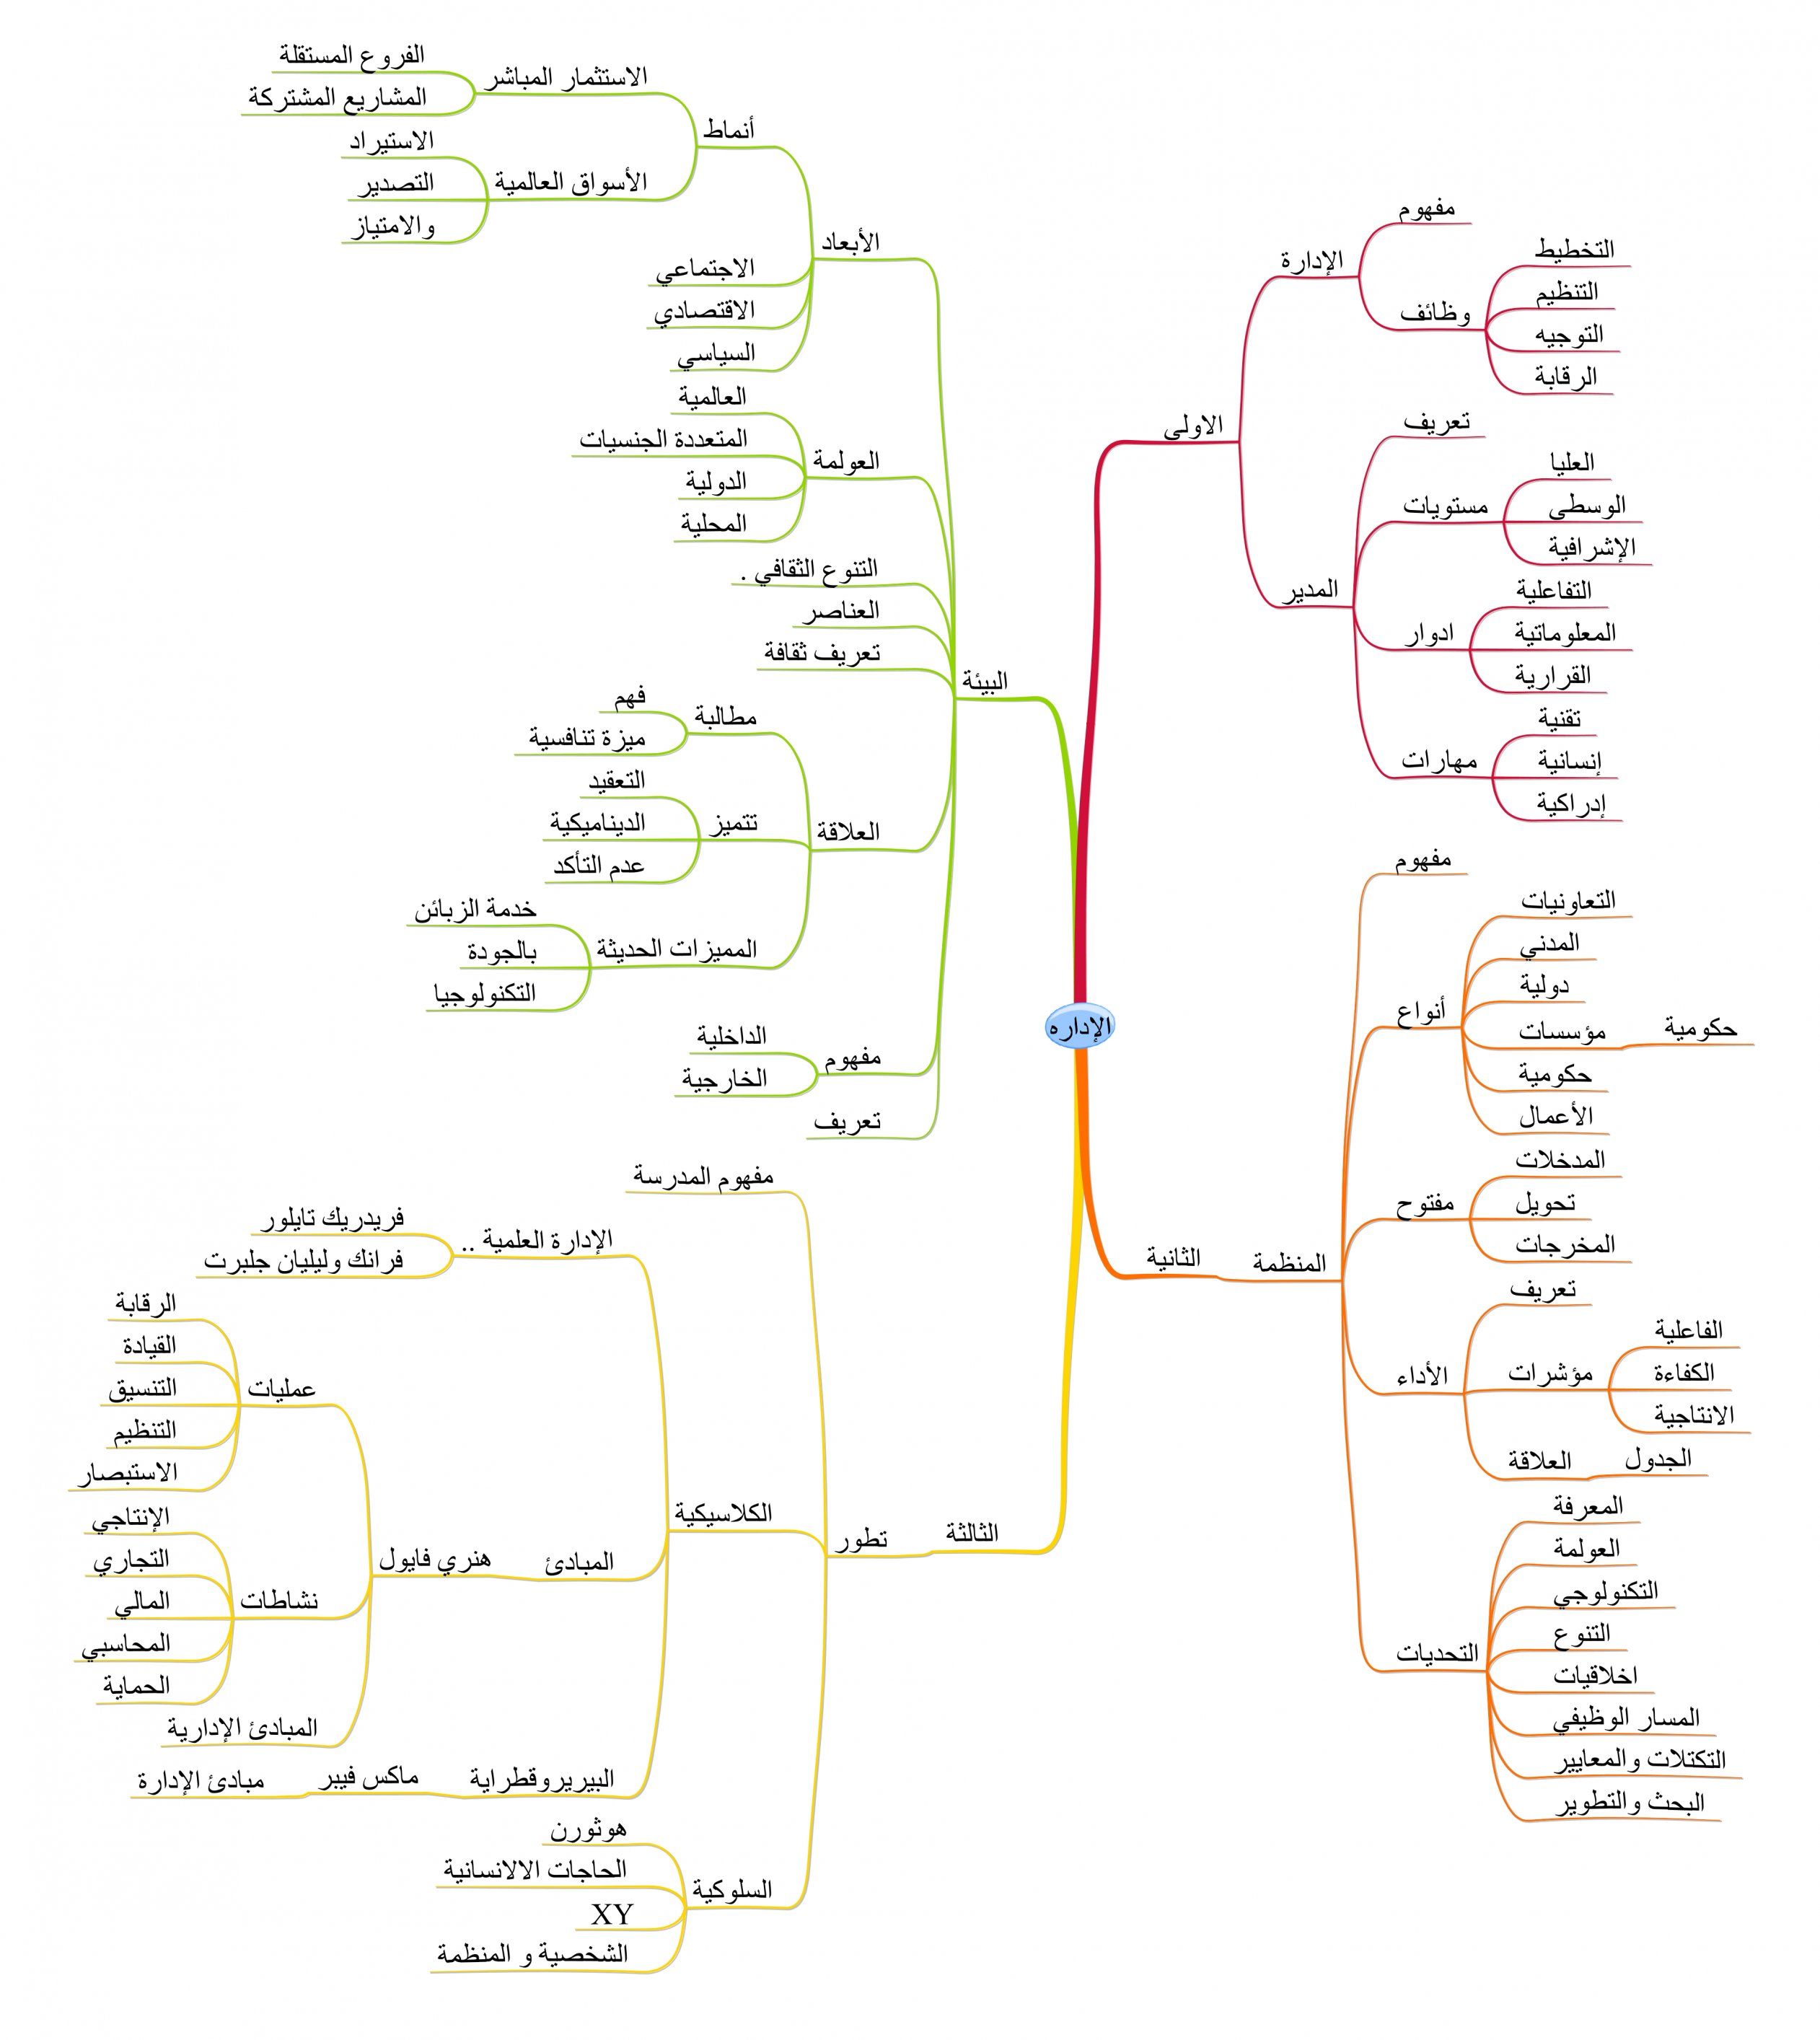 الإداره
الاولي
الإدارة
مفهوم
وظائف
التخطيط
التنظيم
التوجيه
الرقابة
المدير
تعريف
مستويات
العليا
الوسطى
الإشرافية
ادوار
التفاعلية
المعلوماتية
القرارية
مهارات
تقنية
إنسانية
إدراكية
الثانية
المنظمة
مفهوم
أنواع
التعاونيات
المدني
دولية
مؤسسات
حكومية
حكومية
الأعمال
مفتوح
المدخلات
تحويل
المخرجات
الأداء
تعريف
مؤشرات
الفاعلية
الكفاءة
الانتاجية
العلاقة
الجدول
التحديات
المعرفة
العولمة
التكنولوجي
التنوع
اخلاقيات
المسار الوظيفي
التكتلات والمعايير
البحث والتطوير
البيئة
الأبعاد
أنماط
الاستثمار المباشر
الفروع المستقلة
المشاريع المشتركة
الأسواق العالمية
الاستيراد
التصدير
والامتياز
الاجتماعي
الاقتصادي
السياسي
العولمة
العالمية
المتعددة الجنسيات
الدولية
المحلية
التنوع الثقافي .
العناصر
تعريف ثقافة
العلاقة
مطالبة
فهم
ميزة تنافسية
تتميز
التعقيد
الديناميكية
عدم التأكد
المميزات الحديثة
خدمة الزبائن
بالجودة
التكنولوجيا
مفهوم
الداخلية
الخارجية
تعريف
الثالثة
تطور
مفهوم المدرسة
الكلاسيكية
الإدارة العلمية ..
فريدريك تايلور
فرانك وليليان جلبرت
المبادئ
هنري فايول
عمليات
الرقابة
القيادة
التنسيق
التنظيم
الاستبصار
نشاطات
الإنتاجي
التجاري
المالي
المحاسبي
الحماية
المبادئ الإدارية
البيريروقطراية
ماكس فيبر
مبادئ الإدارة
السلوكية
هوثورن
الحاجات الالانسانية
XY
الشخصية و المنظمة